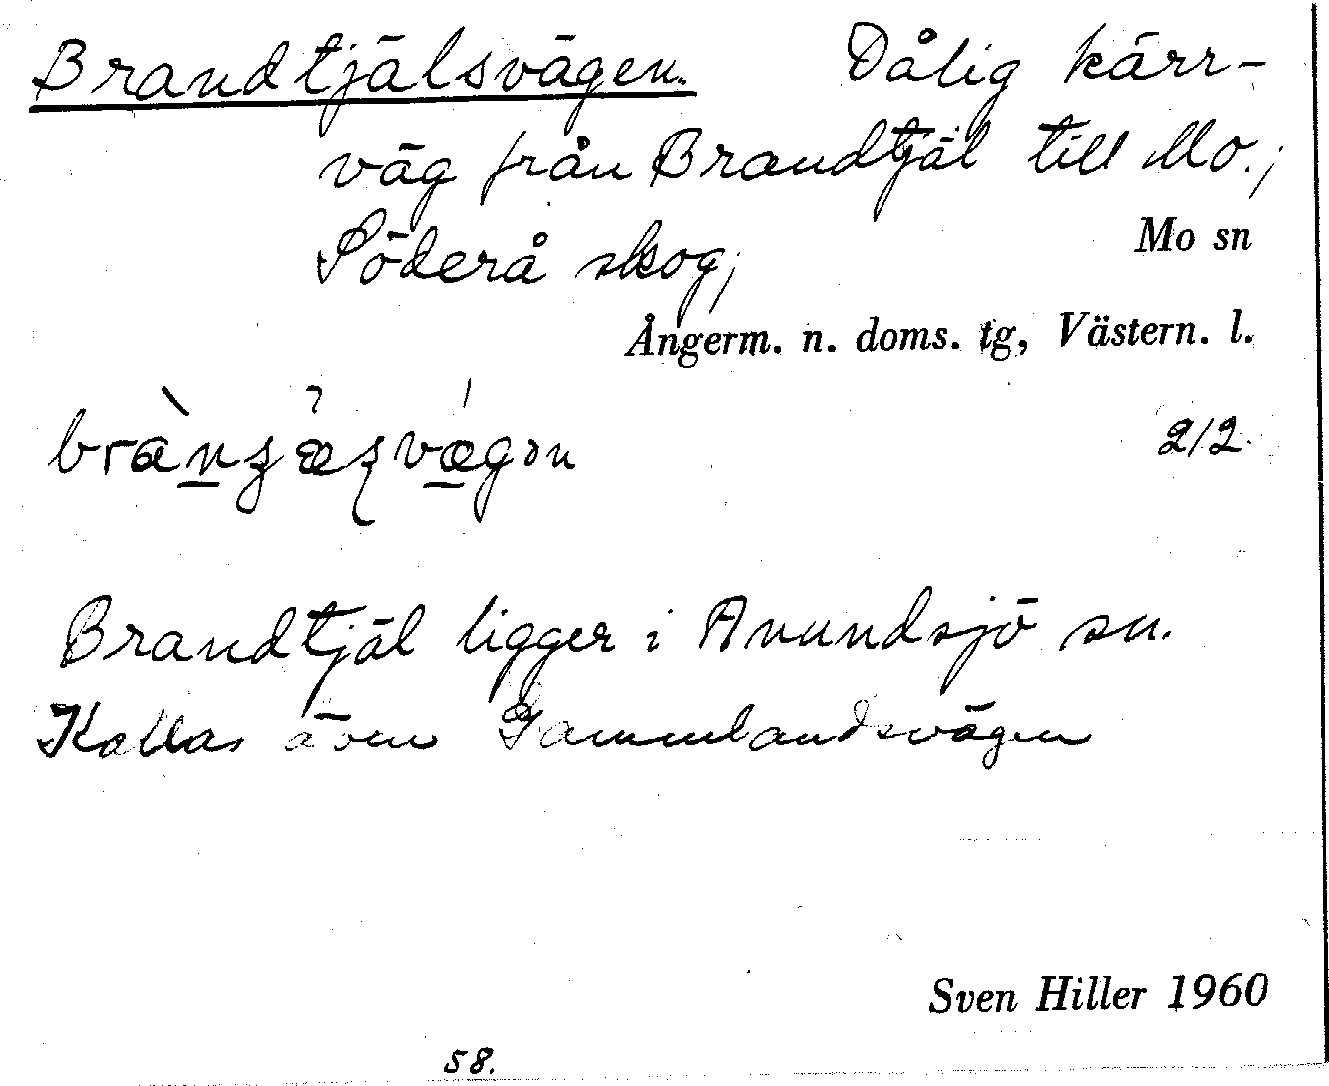 Brandtjälsvägen. Dålig kärr-
väg från Brandtjäl till Mo.;
Söderå skog;
Mo sn
Ångerm. n. doms. tg, Västern. l.
2/2
Brandtjäl ligger i Avundsjö sn.
Kallas även Gammlandsvägen
Sven Hiller 1960
58.